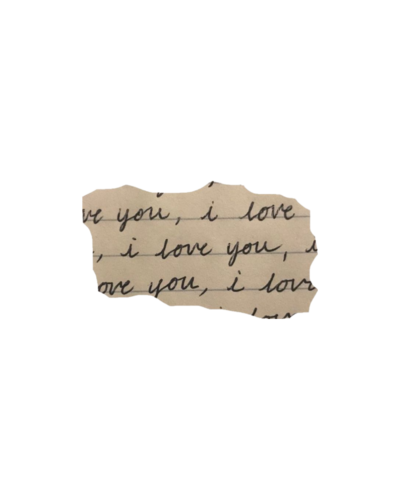 ve you, i love
, i love you, i
ove you, i lov
i lov